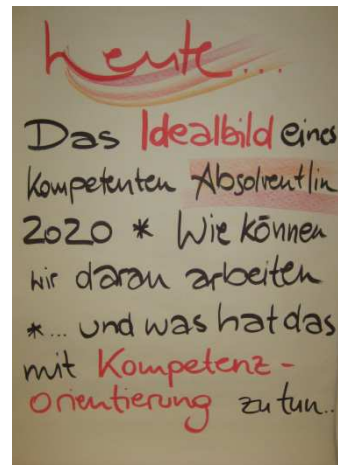 heute...
Das Idealbild eines
kompetenten Absolvent/in
2020 * Wie können
wir daran arbeiten
*... und was hat das
mit Kompetenz-
orientierung zu tun..